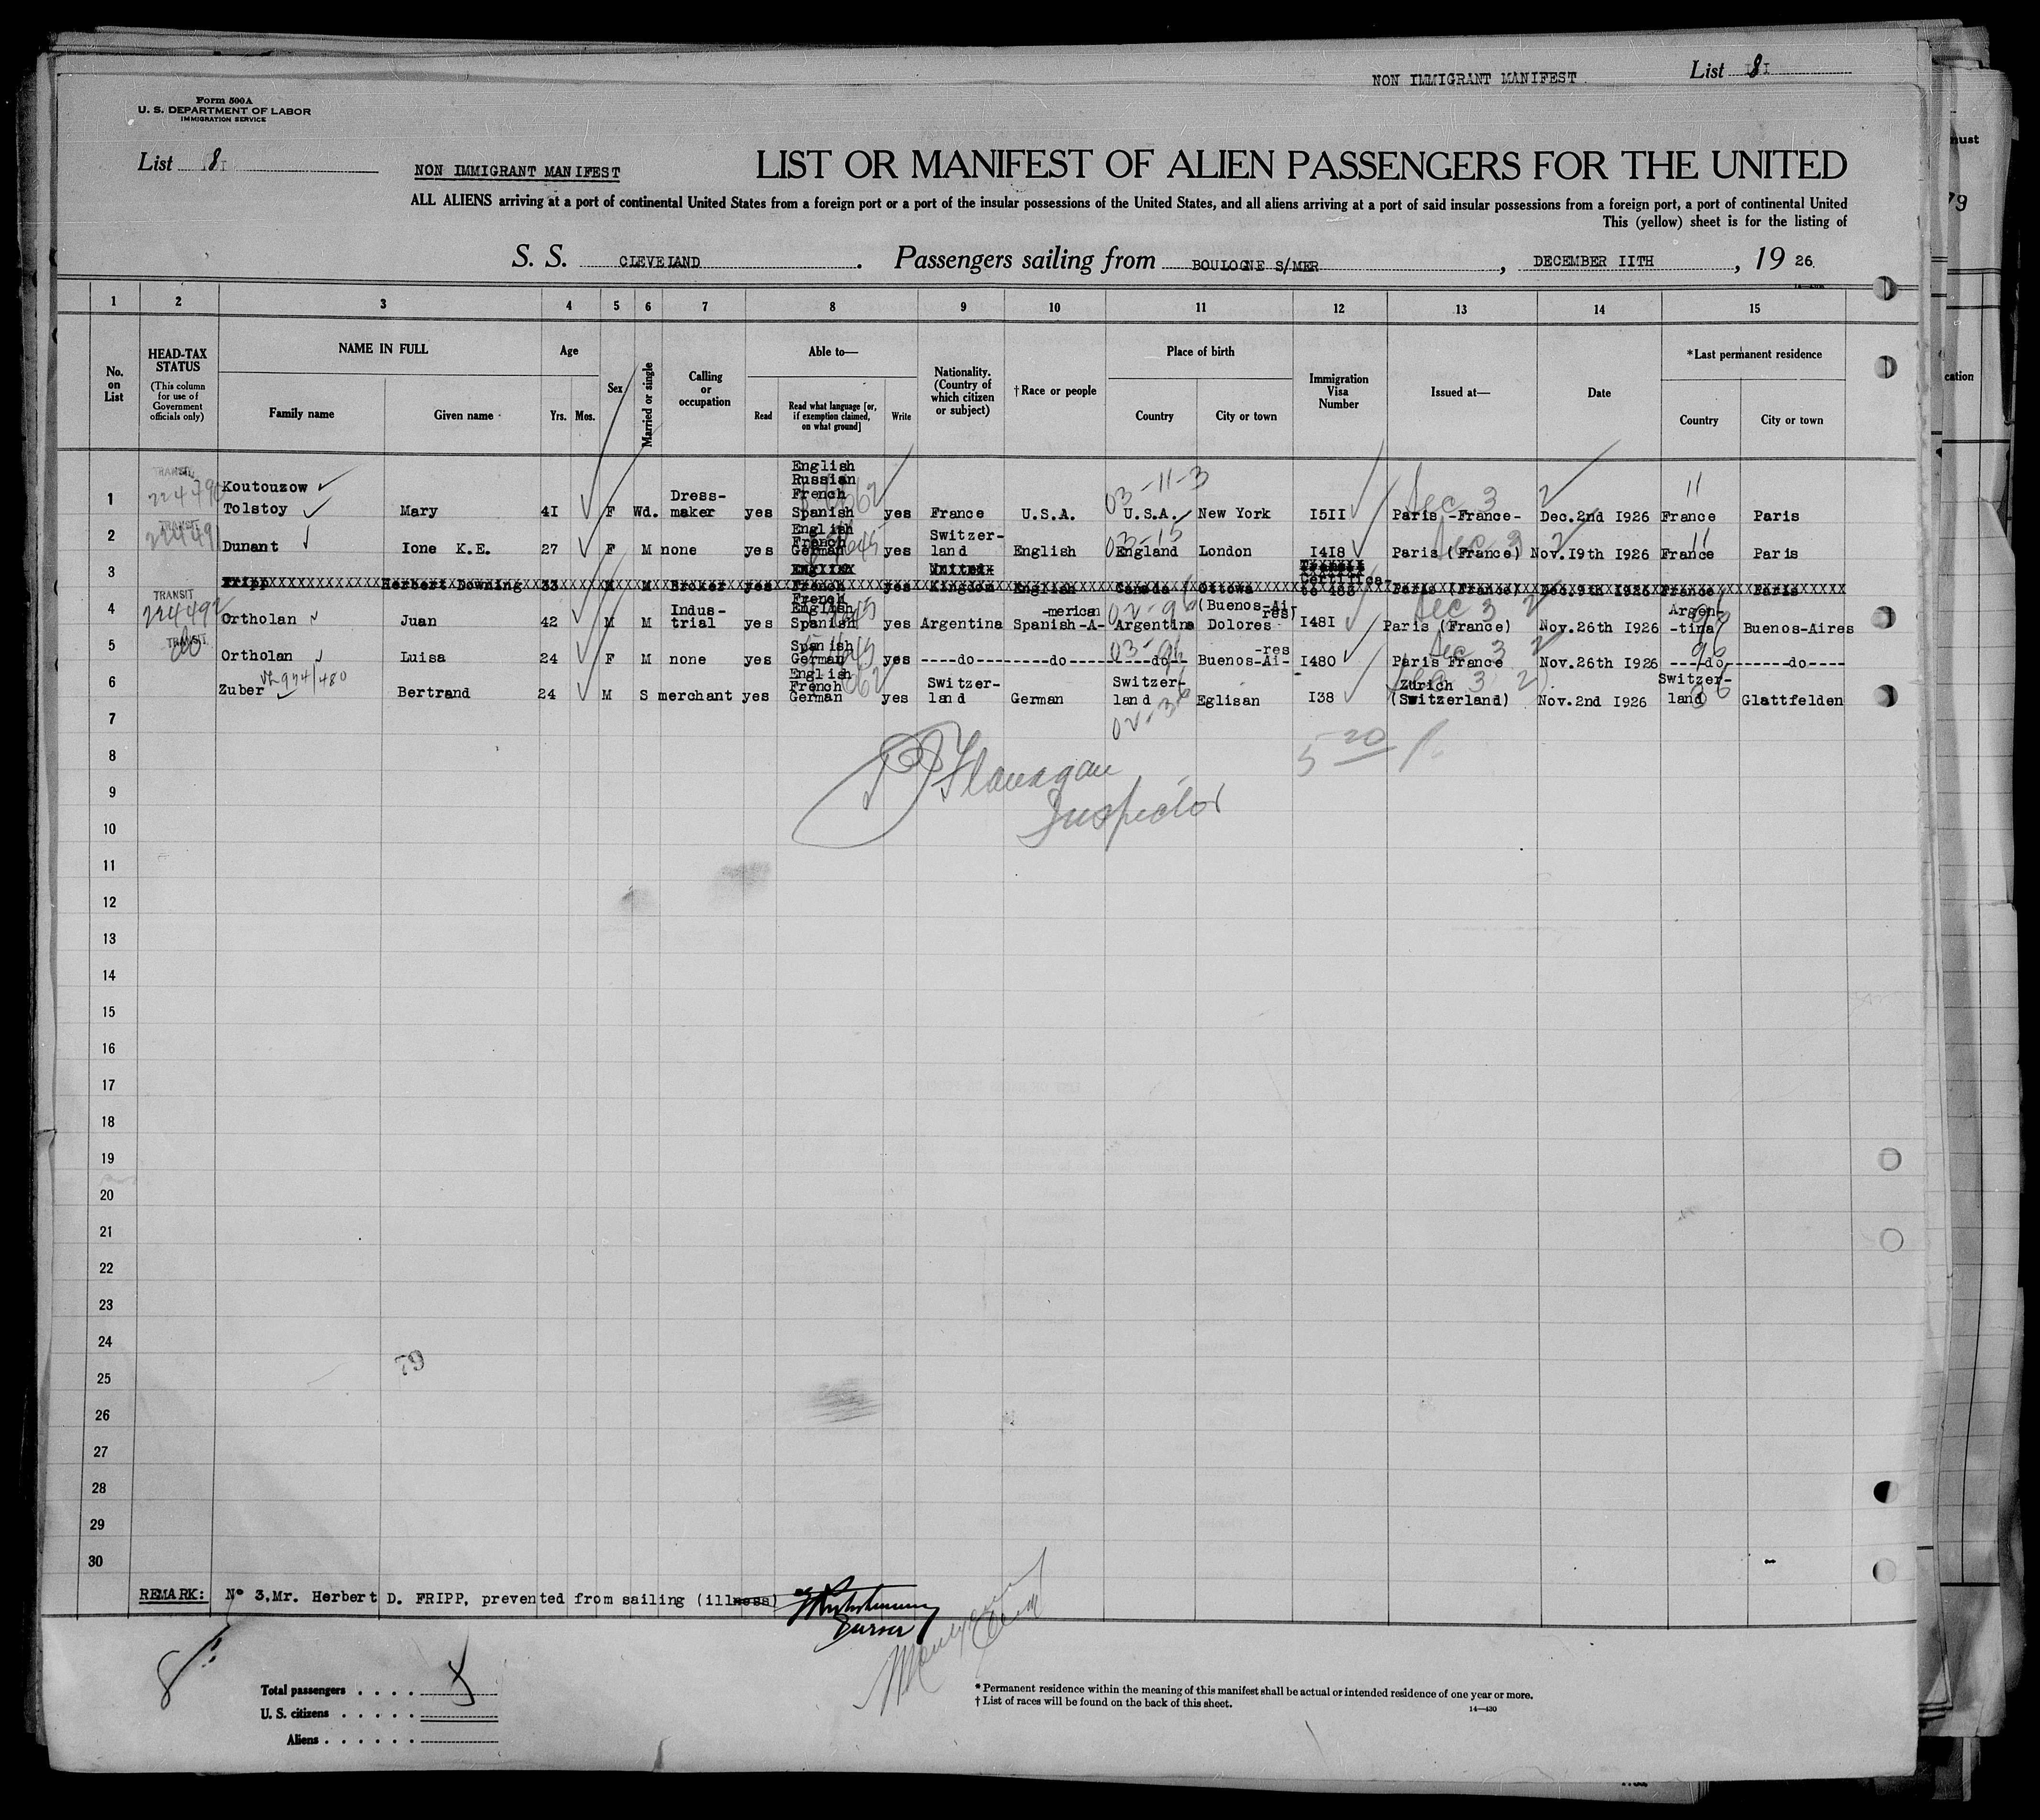 NON IMMIGRANT MANIFEST List 8
Form 500A
U. S. DEPARTMENT OF LABOR
IMMIGRATION SERVICE
List 8
NON IMMIGRANT MANIFEST
LIST OR MANIFEST OF ALIEN PASSENGERS FOR THE UNITED
ALL ALIENS arriving at a port of continental United States from a foreign port or a port of the insular possessions of the United States, and all aliens arriving at a port of said insular possessions from a foreign port, a port of continental United
This (yellow) sheet is for the listing of
S. S. CLEVELAND. Passengers sailing from BOULOGNE S/MER, DECEMBER IITH, 19 26.
1 2 3 4 5 6 7 8 9 10 11 12 13 14 15
No. on List
HEAD-TAX STATUS (This column for use of Government officials only)
NAME IN FULL Family name Given name
Age Yrs. Mos.
Sex
Married or single
Calling or occupation
Able to— Read Read what language [or, if exemption claimed, on what ground] Write
Nationality. (Country of which citizen or subject)
†Race or people
Place of birth Country City or town
Immigration Visa Number
Issued at—
Date
*Last permanent residence Country City or town
1 TRANSIT Koutouzow Tolstoy Mary 4I F Wd. Dress-maker yes English Russian French Spanish yes France U.S.A. U.S.A. New York I5II Paris -France- Dec.2nd I926 France Paris
03-11-3 Sec 3 2 11
2 TRANSIT 224491 Dunant Ione K.E. 27 F M none yes English French German yes Switzer-land English England London I4I8 Paris (France) Nov.I9th I926 France Paris
03-15 Sec 3 2 11
3 Fripp Herbert Downing 33 M M Broker yes English French yes United Kingdom English Canada Ottowa Transit Certifica-te 483 Paris (France) Dec.9th I926 France Paris
4 TRANSIT 224492 Ortholan Juan 42 M M Indus-trial yes French English Spanish yes Argentina Spanish-A-merican Argentina Dolores (Buenos-Ai-res) I48I Paris (France) Nov.26th I926 Argen-tina Buenos-Aires
02-96 Sec 3 2
5 TRANSIT do Ortholan Luisa 24 F M none yes Spanish German yes ----do---- ----do---- ----do-- Buenos-Ai-res I480 Paris France Nov.26th I926 ----do---- ----do----
03-96 Sec 3 2 96
6 Zuber Bertrand 24 M S merchant yes English French German yes Switzer-land German Switzer-land Eglisan I38 Zurich (Switzerland) Nov.2nd I926 Switzer-land Glattfelden
02-36 Sec 3 2 36
7
8
5 20
9
P J Flanagan
Inspector
10
11
12
13
14
15
16
17
18
19
20
21
22
23
24
79
25
26
27
28
29
30
REMARK: N° 3,Mr. Herbert D. FRIPP, prevented from sailing (illness)
Purser
8
Total passengers . . . .
U. S. citizens . . . . .
Aliens . . . . . .
* Permanent residence within the meaning of this manifest shall be actual or intended residence of one year or more.
† List of races will be found on the back of this sheet.
14—430
nust
79
cation